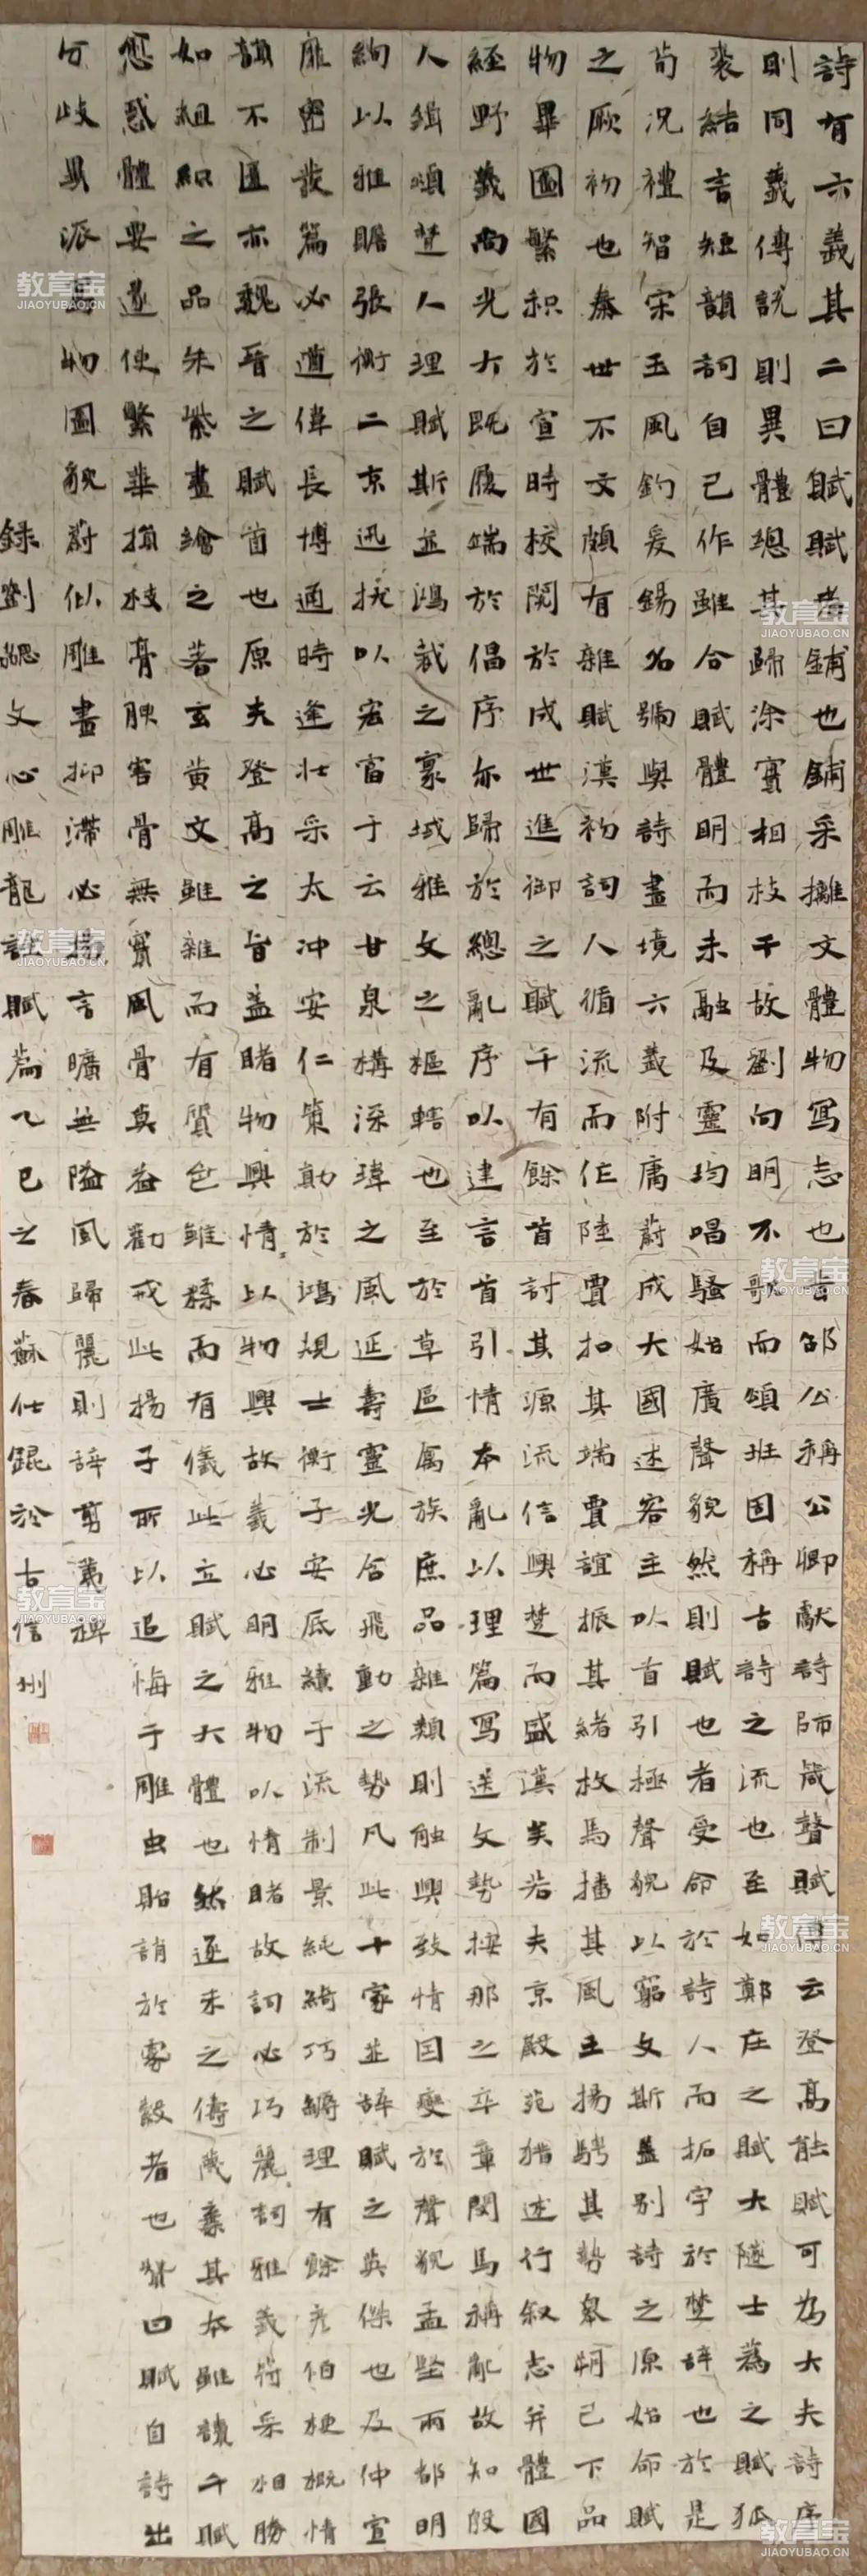 詩有六義其二曰賦賦者鋪也鋪采摛文體物寫志也昔邵公稱公卿獻詩師箴瞽賦傳云登高能賦可為大夫詩序
則同義傳說則異體總其歸涂實相枝干故劉向明不歌而頌班固稱古詩之流也至如鄭庄之賦大隧士蒍之賦狐
裘結言短韻詞自己作雖合賦體明而未融及靈均唱騷始廣聲貌然則賦也者受命於詩人而拓宇於楚辞也於是
荀況禮智宋玉風釣爰錫名號與詩畫境六義附庸蔚成大國述客主以首引極聲貌以窮文斯蓋別詩之原始命賦
之厥初也秦世不文頗有雜賦漢初詞人循流而作陸賈扣其端賈誼振其緒枚馬播其風王揚騁其勢皋朔已下品
物畢圖繁积於宣時校閱於成世進御之賦千有餘首討其源流信興楚而盛漢矣若夫京殿苑猎述行叙志并體國
經野義尚光大既履端於倡序亦歸於總亂序以建言首引情本亂以理篇寫送文勢按那之卒章閔馬稱亂故知殷
人輯頌楚人理賦斯並鴻裁之寰域雅文之樞轄也至於草區禽族庶品雜類則触興致情因變於聲貌孟堅兩都明
絢以雅贍張衡二京迅拔以宏富子云甘泉構深瑋之風延壽靈光含飛動之勢凡此十家並辞賦之英傑也及仲宣
靡密發篇必遒偉長博通時逢壯采太冲安仁策勛於鴻規士衡子安底績于流制景純綺巧縟理有餘彥伯梗概情
韻不匱亦魏晉之賦首也原夫登高之旨蓋睹物興情以物興故義必明雅物以情睹故詞必巧麗詞雅義符采相勝
如組織之品朱紫畫繪之著玄黃文雖雜而有質色雖糅而有儀此立賦之大體也然逐末之儔蔑棄其本雖讀千賦
愈惑體要遂使繁華損枝膏腴害骨無實風骨莫益勸戒此揚子所以追悔于雕虫貽誚於霧縠者也贊曰賦自詩出
分歧異派寫物圖貌蔚似雕畫抑滯必揚言曠無隘風歸麗則辞剪荑稗
錄劉勰文心雕龍詮賦篇乙巳之春蘇仕錕於古信州
教育宝
JIAOYUBAO.CN
教育宝
JIAOYUBAO.CN
教育宝
JIAOYUBAO.CN
教育宝
JIAOYUBAO.CN
教育宝
JIAOYUBAO.CN
教育宝
JIAOYUBAO.CN
教育宝
JIAOYUBAO.CN